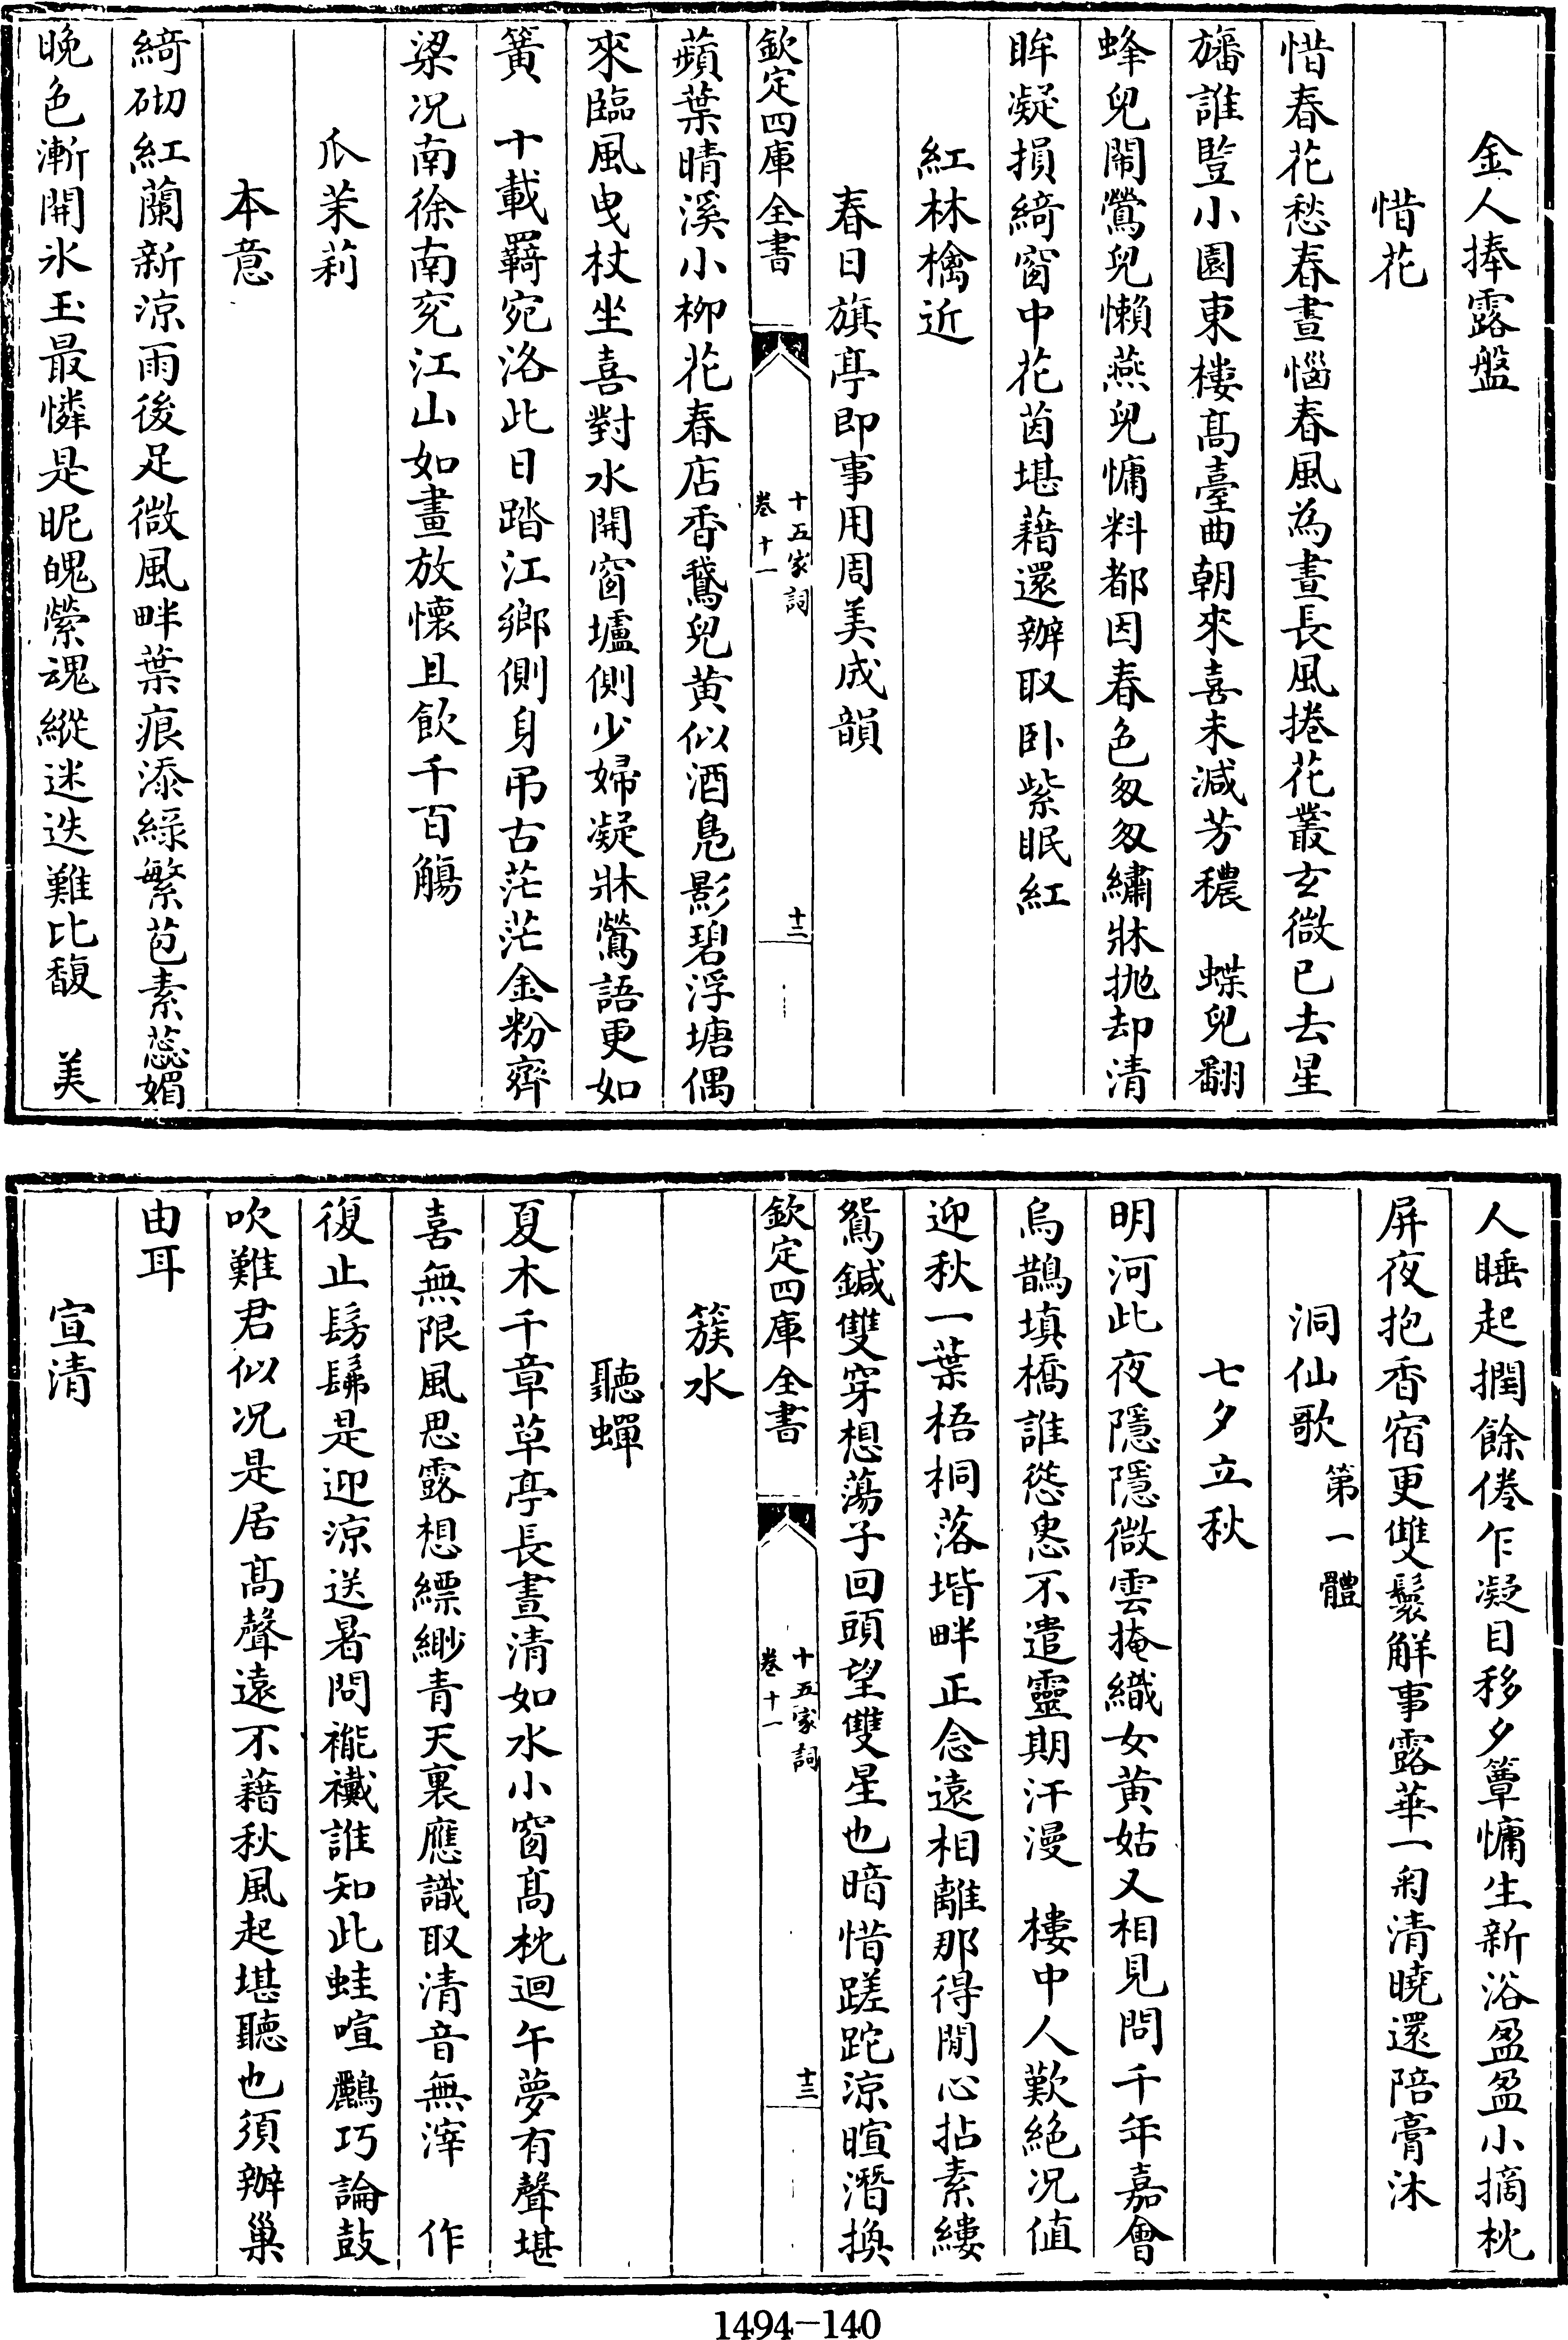 金人捧露盤
惜花
惜春花愁春晝惱春風為晝長風捲花叢玄微已去星
旛誰豎小園東樓髙臺曲朝來喜未減芳穠　蝶兒翻
蜂兒鬧鶯兒懶燕兒慵料都因春色匆匆繡牀拋却清
眸凝損綺窗中花茵堪藉還辦取卧紫眠紅
紅林檎近
春日旗亭即事用周美成韻
欽定四庫全書
十五家詞
卷十一
十二
蘋葉晴溪小柳花春店香鵞兒黄似酒鳧影碧浮塘偶
來臨風曳杖坐喜對水開窗壚側少婦凝牀鶯語更如
簧　十載羇宛洛此日踏江鄉側身弔古茫茫金粉齊
梁况南徐南兖江山如畫放懷且飲千百觴
爪茉莉
本意
綺砌紅蘭新涼雨後足微風畔葉痕添緑繁苞素蕊媚
晚色漸開氷玉最憐是昵魄縈魂縱迷迭難比馥　美
人睡起撋餘倦乍凝目移夕簟慵生新浴盈盈小摘枕
屏夜抱香宿更雙鬟解事露華一匊清曉還陪膏沐
洞仙歌第一體
七夕立秋
明河此夜隱隱微雲掩織女黄姑又相見問千年嘉會
烏鵲填橋誰慫恿不遣靈期汗漫　樓中人歎絶况值
迎秋一葉梧桐落堦畔正念遠相離那得閒心拈素縷
鴛鍼雙穿想蕩子回頭望雙星也暗惜蹉跎涼暄潛換
欽定四庫全書
十五家詞
卷十一
十三
簇水
聽蟬
夏木千章草亭長晝清如水小窗髙枕迴午夢有聲堪
喜無限風思露想縹緲青天裏應識取清音無滓　作
復止髣髴是迎涼送暑問褦襶誰知此蛙喧鸝巧論鼓
吹難君似况是居髙聲遠不藉秋風起堪聽也須辦巢
由耳
宣清
1494-140